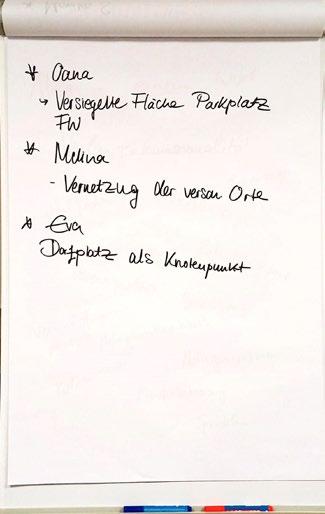 * Oana
→ Versiegelte Fläche Parkplatz
FW
* Melina
- Vernetzug der versch Orte
* Eva
Dorfplatz als Knotenpunkt